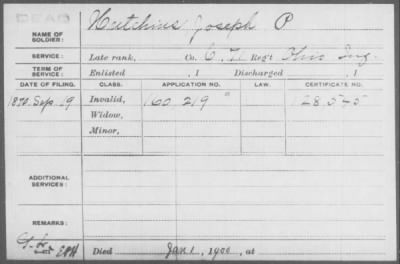 DEAD
NAME OF SOLDIER: Hutchins Joseph P
SERVICE: Late rank, Co. Reg't Inf.
TERM OF SERVICE: Enlisted , 1 Discharged , 1
DATE OF FILING. CLASS. APPLICATION NO. LAW. CERTIFICATE NO.
Sep. 19 Invalid, 160 219
Widow,
Minor,
ADDITIONAL SERVICES:
REMARKS:
Died Jan 1, 1900, at